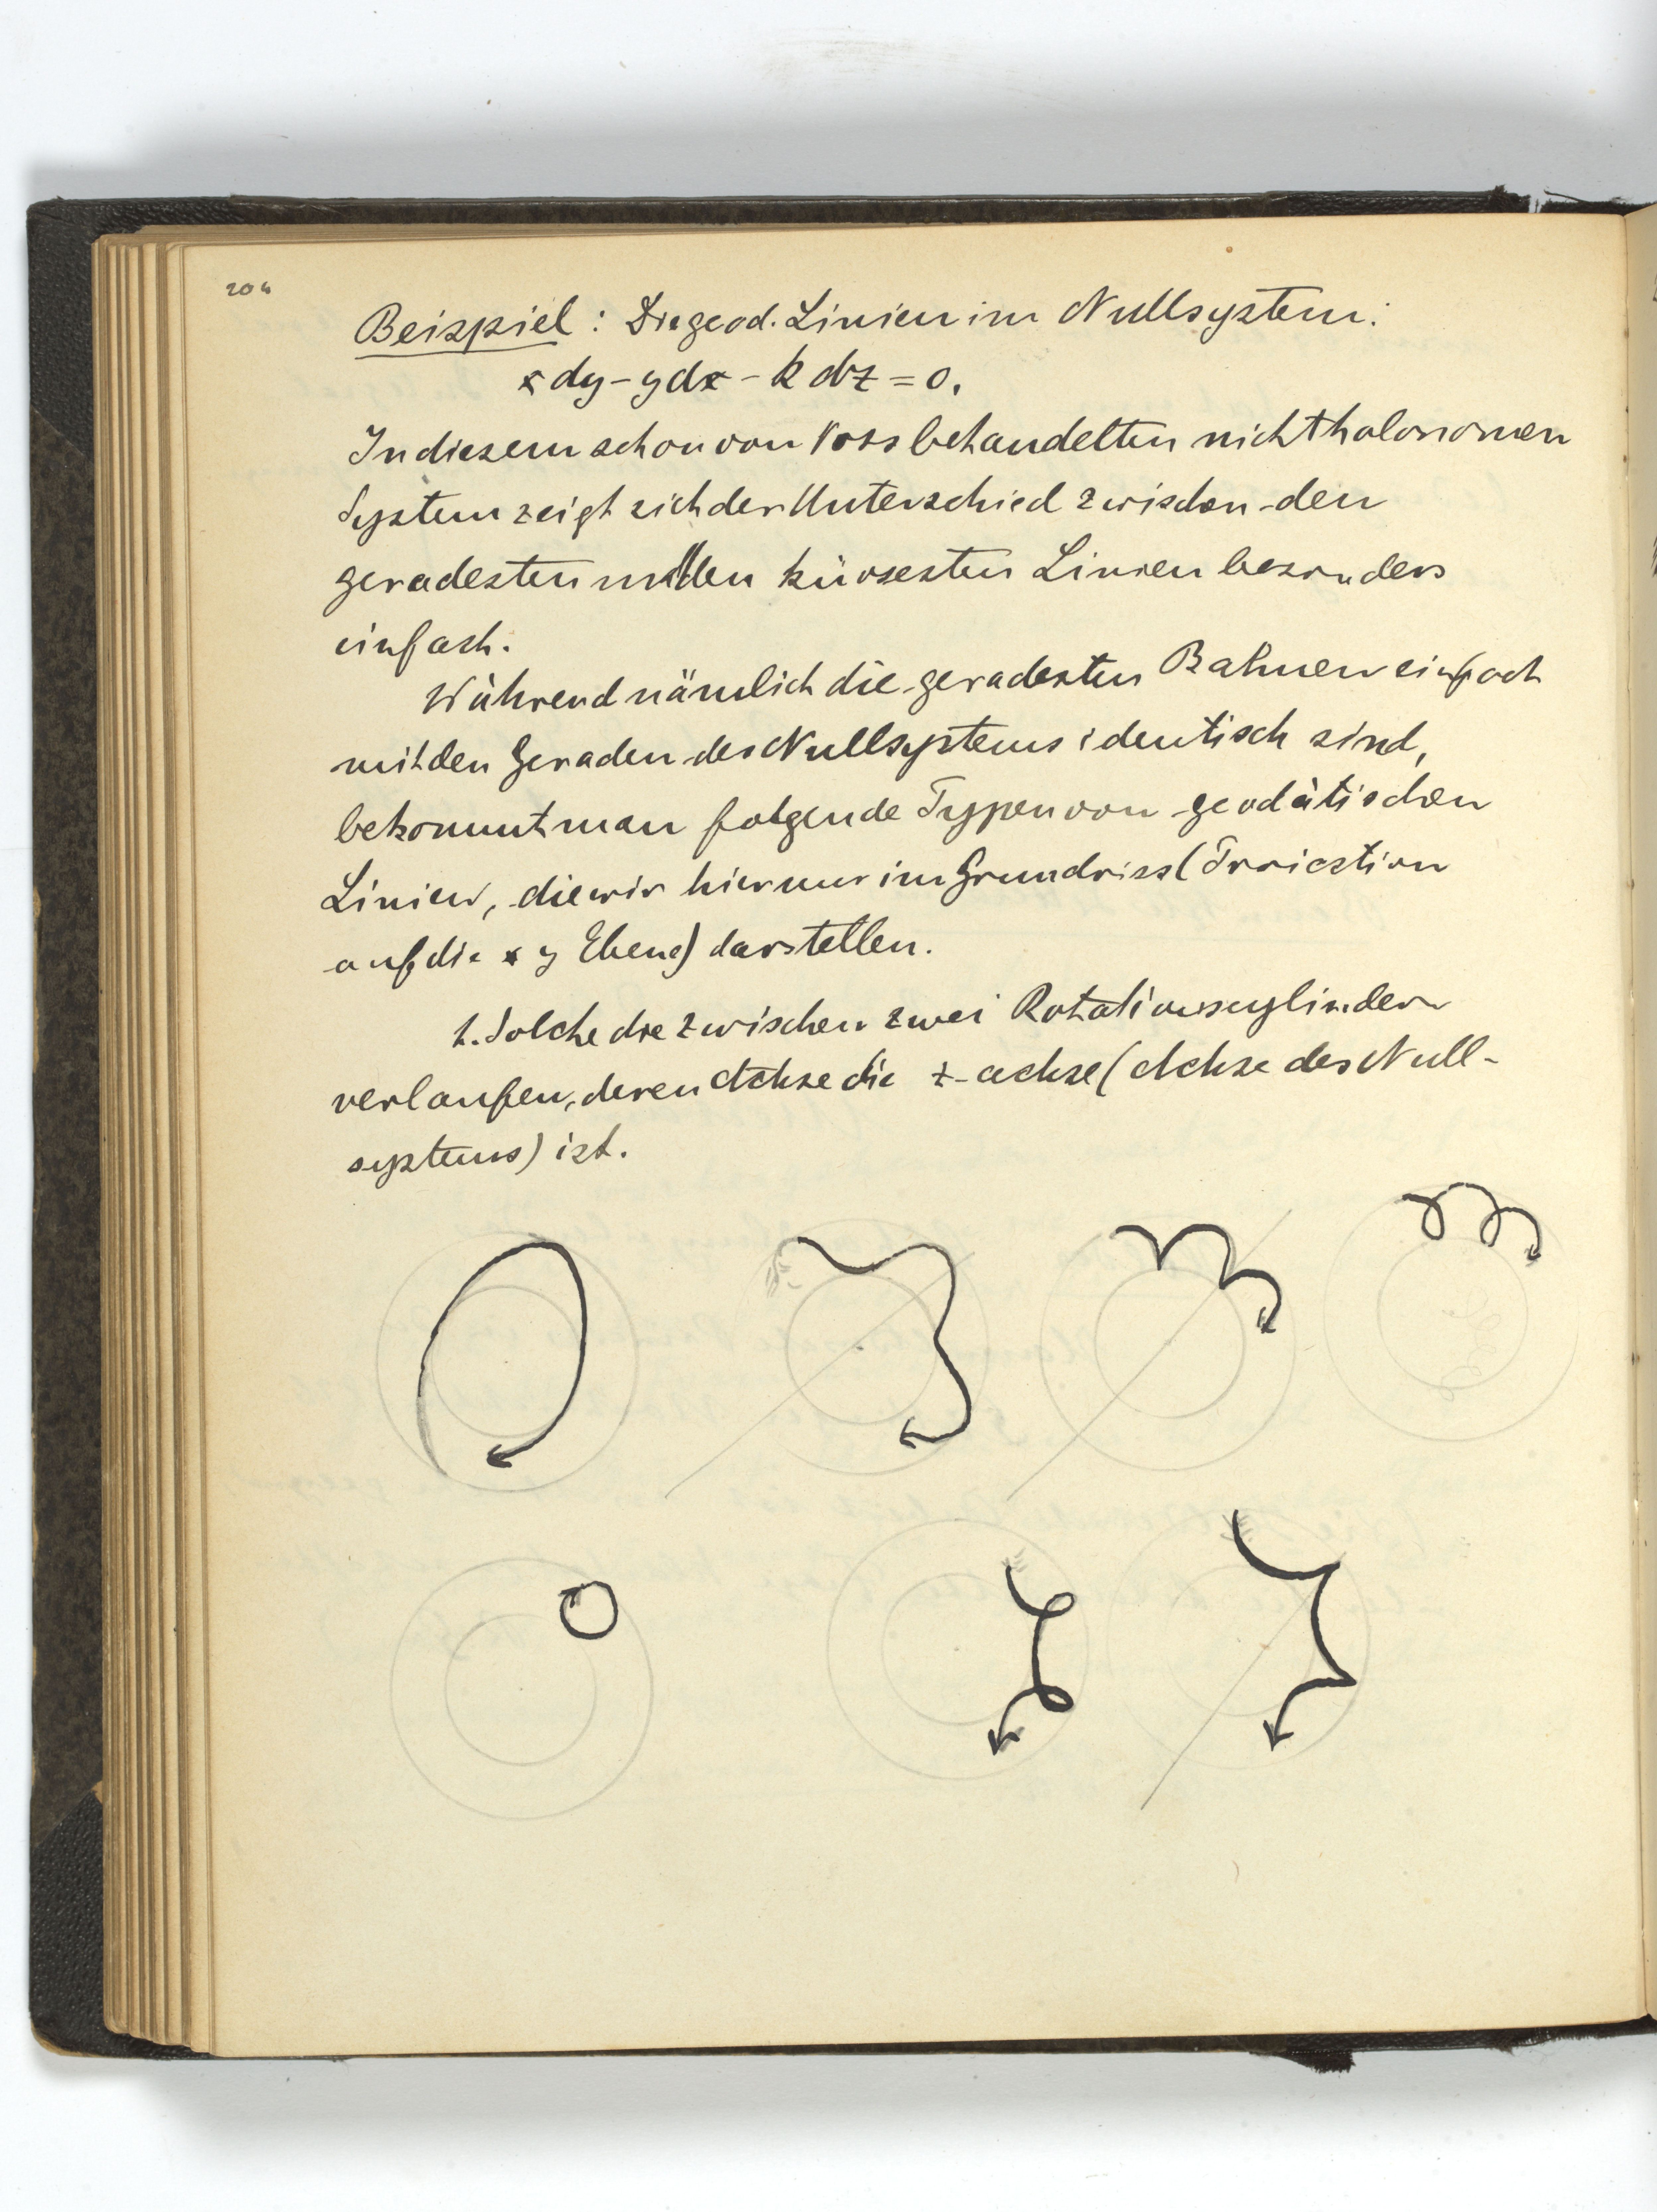 204
Beispiel: Die geod. Linien im Nullsystem:
x dy - y dx - k dz = 0.
In diesem schon von Voss behandelten nichtholonomen
System zeigt sich der Unterschied zwischen den
geradesten und den kürzesten Linien besonders
einfach.
Während nämlich die geradesten Bahnen einfach
mit den Geraden des Nullsystems identisch sind,
bekommt man folgende Typen von geodätischen
Linien, die wir hier nur im Grundriss (Projection
auf die x y Ebene) darstellen.
1. Solche die zwischen zwei Rotationscylindern
verlaufen, deren Achse die z-achse (Achse des Null-
systems) ist.